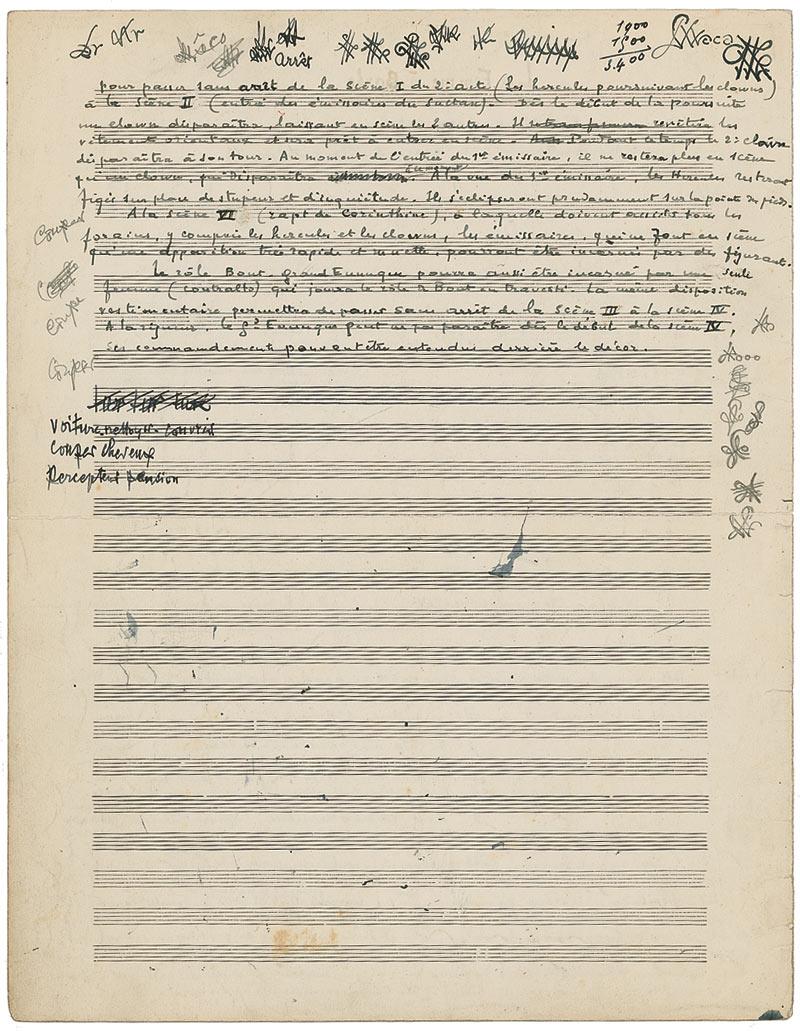 Arrêt
1900
1500
3.400
pour passer sans arrêt de la Scène I du 2e acte (Les hercules poursuivant les clowns)
à la Scène II (entrée des émissaires du Sultan). Dès le début de la poursuite
un clown disparaîtra, laissant en scène les 3 autres. Il revêtira les
vêtements orientaux et sera prêt à entrer en scène. Pendant ce temps le 2e clown
disparaîtra à son tour. Au moment de l'entrée du 1er émissaire, il ne restera plus en scène
qu'un clown, qui disparaîtra. A la vue du 1er émissaire les Hercules resteront
figés sur place de stupeur et d'inquiétude. Ils s'éclipseront prudemment sur la pointe des pieds.
A la Scène VI (rapt de Corinthine), à laquelle doivent assister tous les
forains, y compris les hercules et les clowns, les émissaires, qui ne font en scène
qu'une apparition très rapide et muette, pourront être incarnés par des figurants.
Le rôle Bout-grand Eunuque pourra aussi être incarné par une seule
femme (contralto) qui jouera le rôle de Bout en travesti. La même disposition
vestimentaire permettra de passer sans arrêt de la Scène III à la scène IV.
A la rigueur, le gd Eunuque peut ne pas paraître dès le début de la scène IV,
ses commandements pouvant être entendus derrière le décor.
Couper
Coupe
Couper
voiture nettoyer
Couper cheveux
Percepteur pension